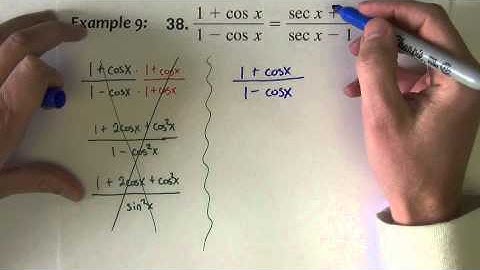 Example 9: 38. 1 + cos x / 1 − cos x = sec x + / sec x − 1
1 + cosx · 1 + cosx
1 − cosx · 1 + cosx
1 + 2cosx + cos²x
1 − cos²x
1 + 2cosx + cos²x
sin²x
1 + cosx
1 − cosx
Sharpie